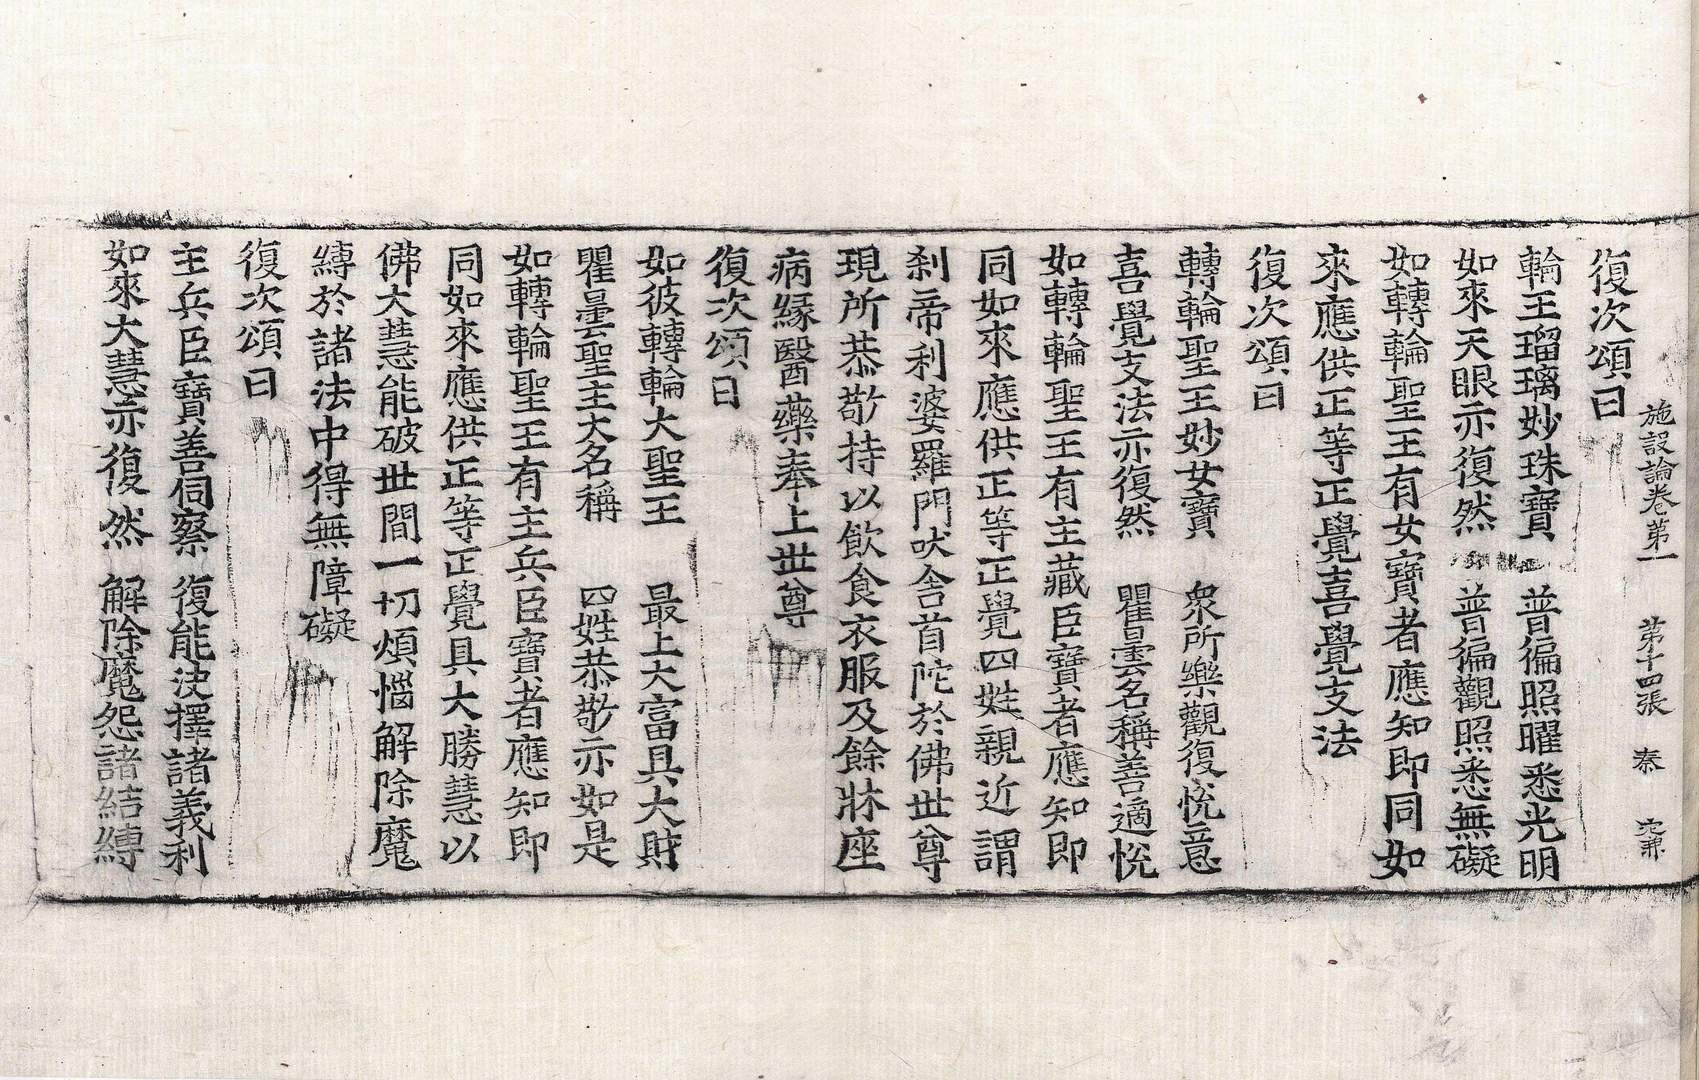 施設論卷第一 第十四張 秦
復次頌曰
輪王瑠璃妙珠寶 普徧照曜悉光明
如來天眼亦復然 普徧觀照悉無礙
如轉輪聖王有女寶者應知即同如
來應供正等正覺喜覺支法
復次頌曰
轉輪聖王妙女寶 衆所樂觀復悅意
喜覺支法亦復然 瞿曇名稱善適悅
如轉輪聖王有主藏臣寶者應知即
同如來應供正等正覺四姓親近謂
刹帝利婆羅門吠舍首陀於佛世尊
現所恭敬持以飲食衣服及餘牀座
病緣醫藥奉上世尊
復次頌曰
如彼轉輪大聖王 最上大富具大財
瞿曇聖主大名稱 四姓恭敬亦如是
如轉輪聖王有主兵臣寶者應知即
同如來應供正等正覺具大勝慧以
佛大慧能破世間一切煩惱解除魔
縛於諸法中得無障礙
復次頌曰
主兵臣寶善伺察 復能決擇諸義利
如來大慧亦復然 解除魔怨諸結縛